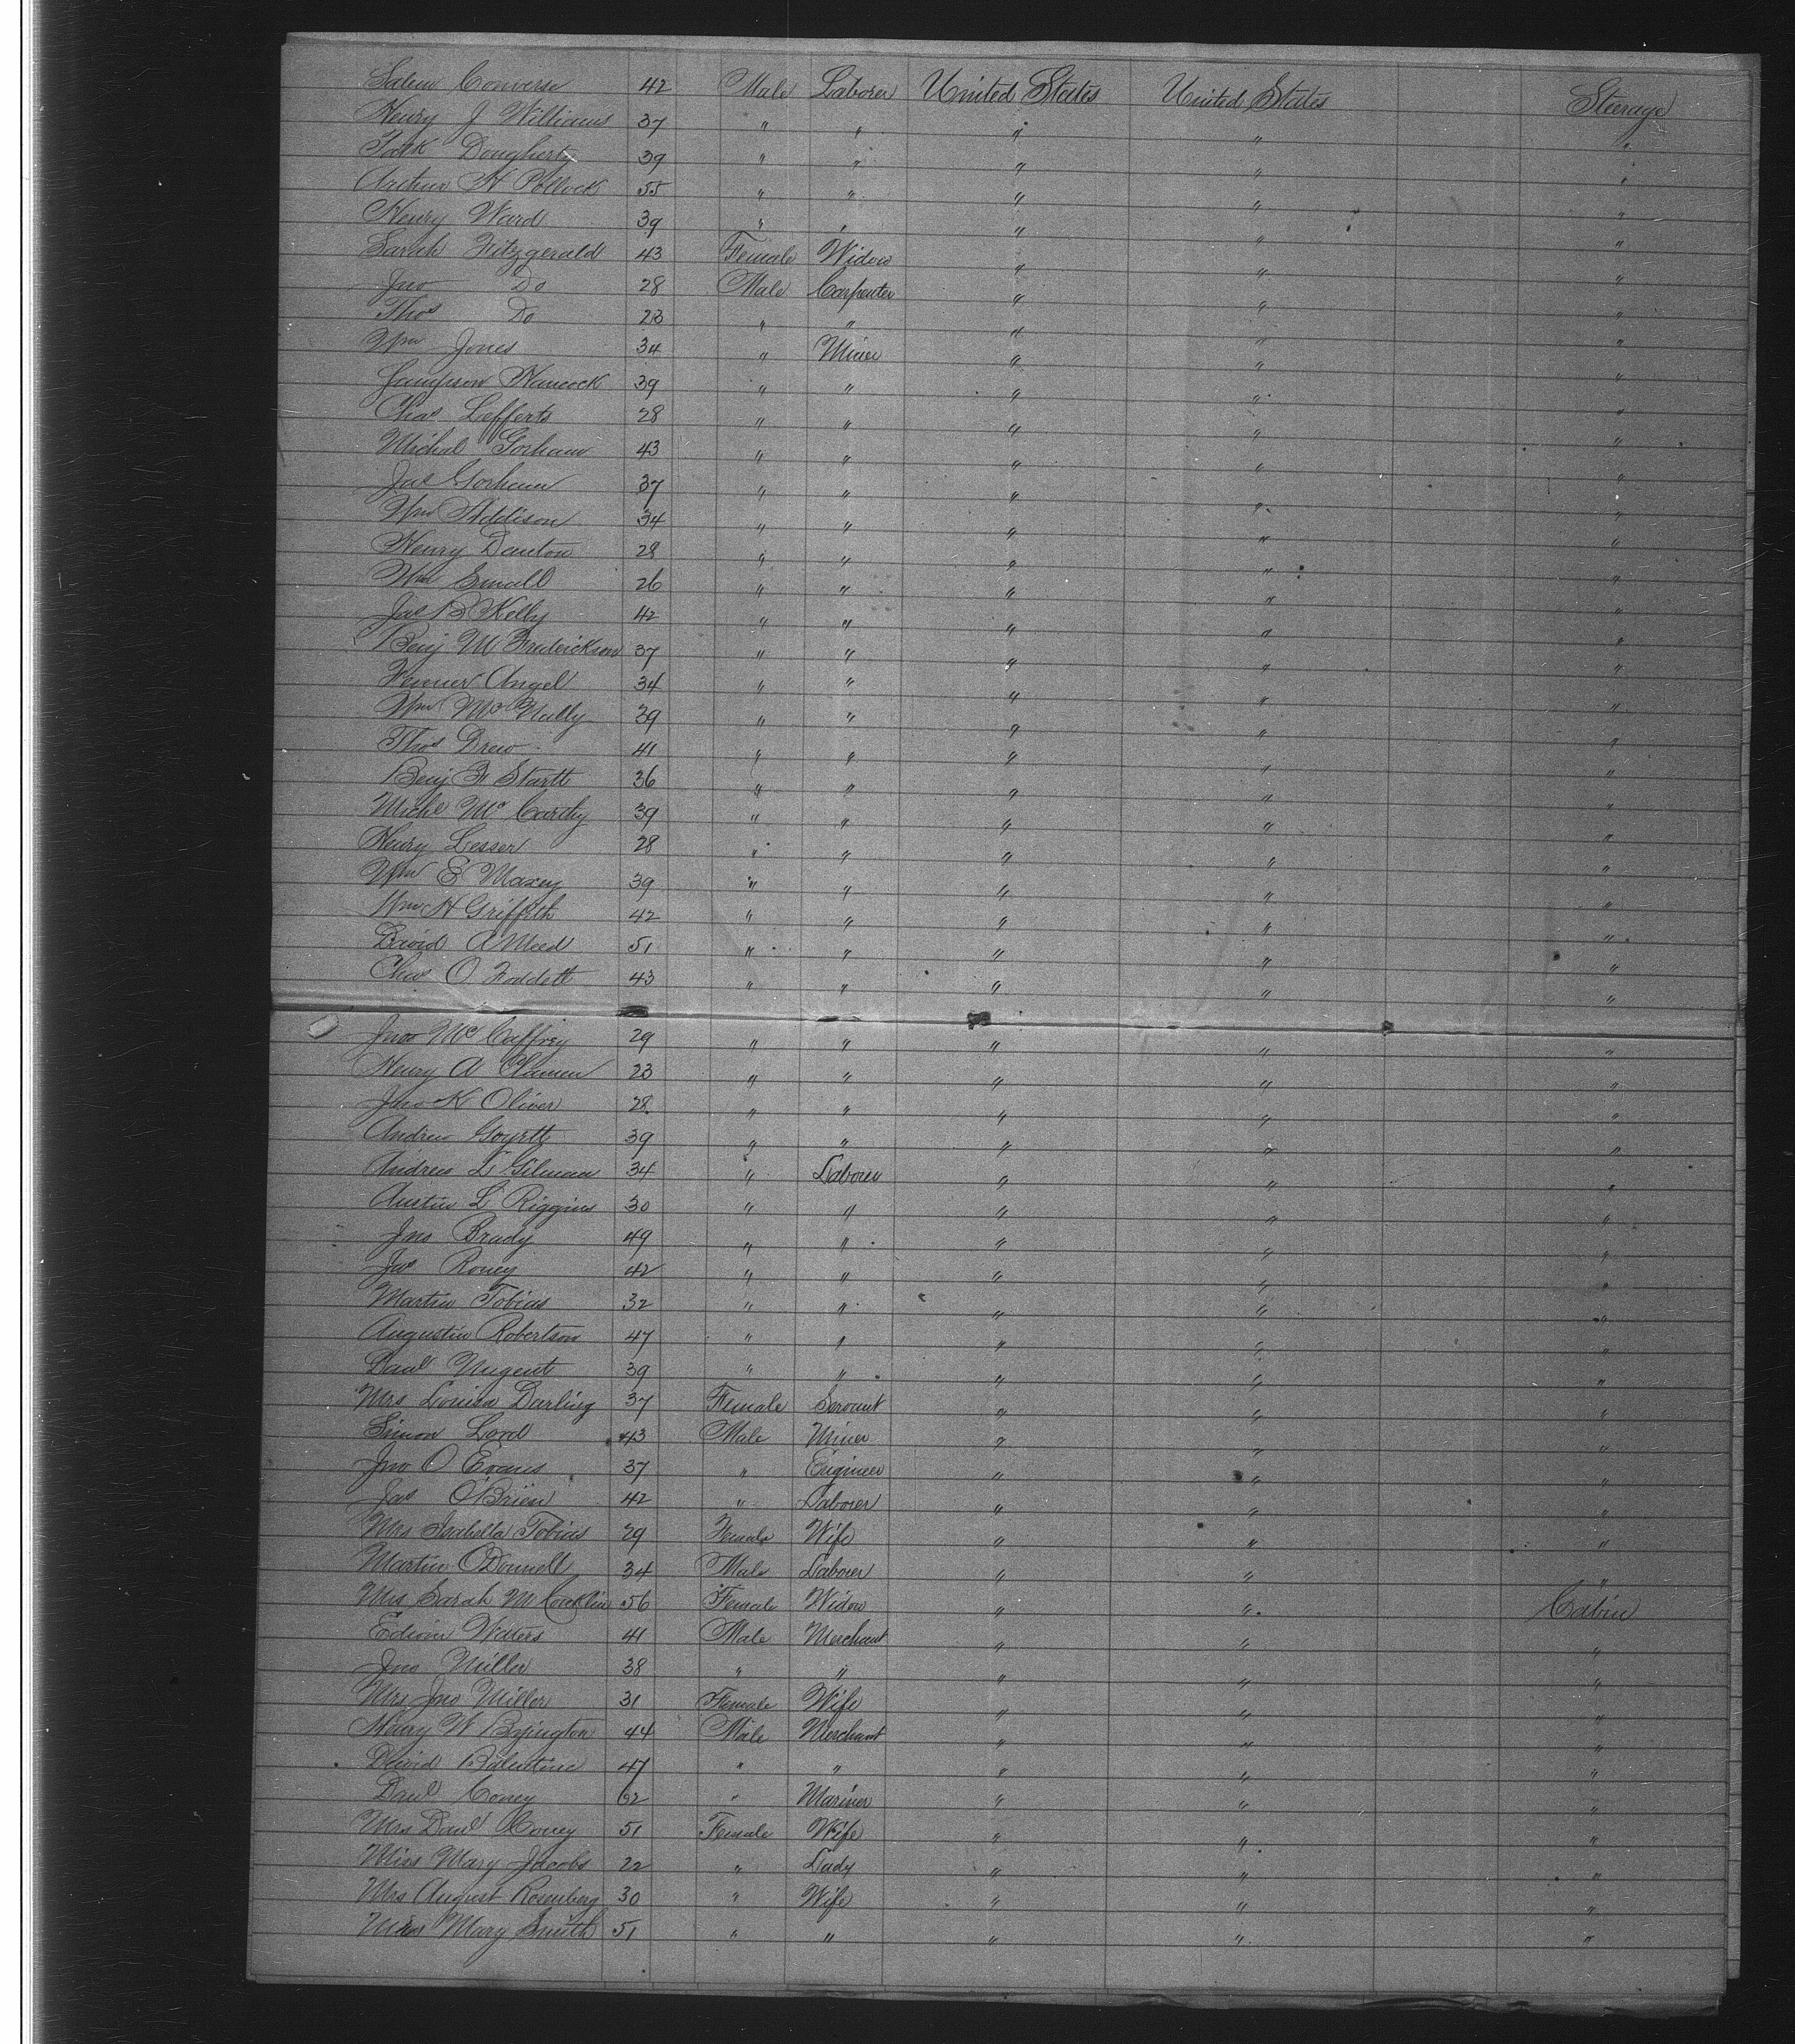 Salem Converse 42 Male Laborer United States United States Steerage
Henry J Williams 37 " " " " "
Dougherty 39 " " " " "
Arthur H Pollock 55 " " " " "
Henry Ward 39 " " " " "
Sarah Fitzgerald 43 Female Widow " " "
Jno Do 28 Male Carpenter " " "
Thos Do 23 " " " " "
Wm Jones 34 " Miner " " "
Sampson Hancock 39 " " " " "
Chas Lefferts 28 " " " " "
Michal Gorham 43 " " " " "
Jas Gorham 37 " " " " "
Wm Addison 34 " " " " "
Henry Danton 28 " " " " "
Wm Small 26 " " " " "
Jas B Kelly 42 " " " " "
Benj M Frederickson 37 " " " " "
Fenner Angel 34 " " " " "
Wm McNally 39 " " " " "
Thos Drew 41 " " " " "
Benj F Startt 36 " " " " "
Michl McCarthy 39 " " " " "
Henry Lesser 28 " " " " "
Wm E Maxey 39 " " " " "
Wm H Griffith 42 " " " " "
David A Meed 51 " " " " "
Chas O 43 " " " " "
Jno McCaffrey 29 " " " " "
Henry A 23 " " " " "
Jno K Oliver 28 " " " " "
Andrew 39 " " " " "
Andrew L Gilman 34 " Laborer " " "
Austin L Riggins 30 " " " " "
Jno Brady 49 " " " " "
Jas Roney 42 " " " " "
Martin Tobias 32 " " " " "
Augustin Robertson 47 " " " " "
Danl Nugent 39 " " " " "
Mrs Louisa Darling 37 Female Servant " " "
Simon Lord 43 Male Miner " " "
Jno O Evans 37 " Engineer " " "
Jas O'Brien 42 " Laborer " " "
Mrs Isabella Tobias 29 Female Wife " " "
Martin O'Donnell 34 Male Laborer " " "
Mrs Sarah McConklin 56 Female Widow " " Cabin
Edwin Waters 41 Male Merchant " " "
Jno Miller 38 " " " " "
Mrs Jno Miller 31 Female Wife " " "
Henry W Byington 44 Male Merchant " " "
David Balentine 47 " " " " "
Danl Coney 62 " Mariner " " "
Mrs Danl Coney 51 Female Wife " " "
Miss Mary Jacobs 22 " Lady " " "
Mrs August Rosenberg 30 " Wife " " "
Mrs Mary Smith 51 " " " " "